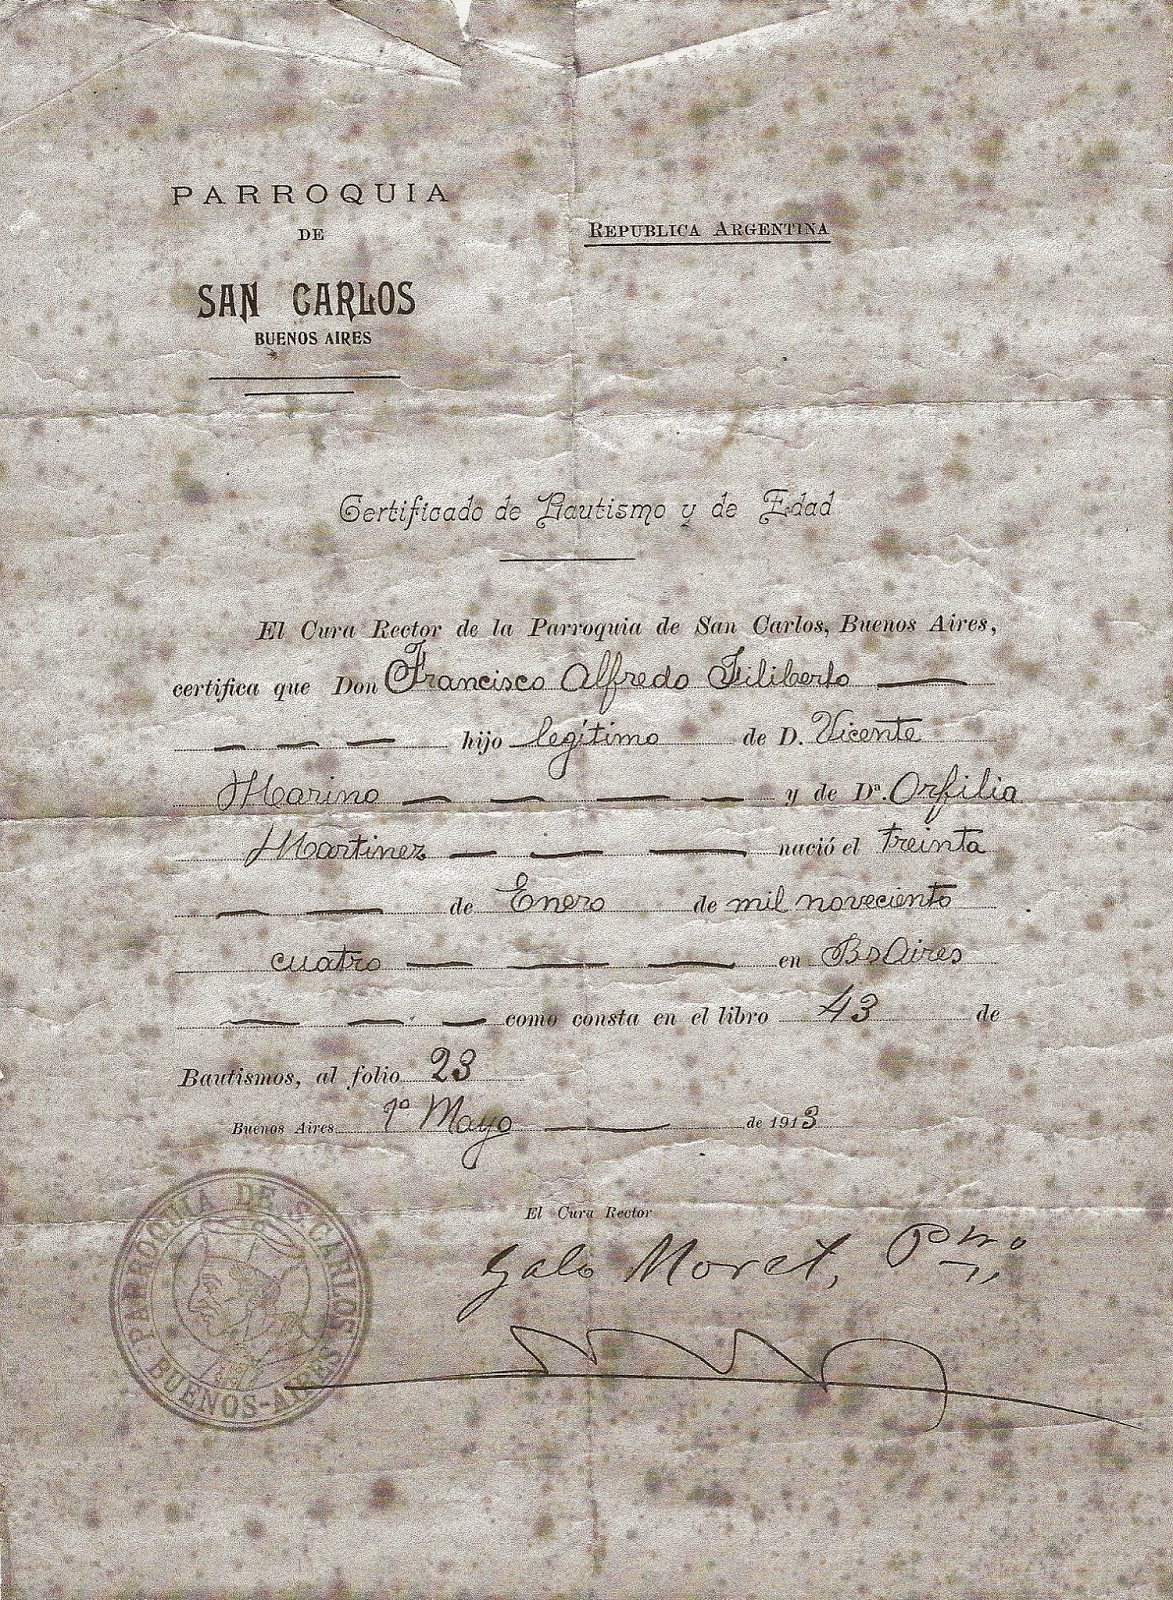 PARROQUIA
DE
SAN CARLOS
BUENOS AIRES
REPUBLICA ARGENTINA
Certificado de Bautismo y de Edad
El Cura Rector de la Parroquia de San Carlos, Buenos Aires,
certifica que Don Francisco Alfredo Filiberto
hijo legítimo de D. Vicente
Marino y de Dª. Orfilia
Martinez nació el treinta
de Enero de mil noveciento
cuatro en BsAires
como consta en el libro 43 de
Bautismos, al folio 23
Buenos Aires 1º Mayo de 1913
El Cura Rector
Galo Moret, Pbro
PARROQUIA DE S. CARLOS
BUENOS-AIRES